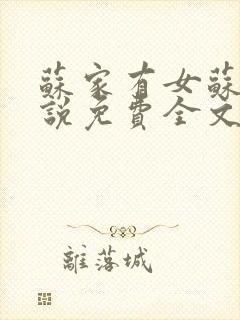 蘇家有女蘇
說免費全文
離落城